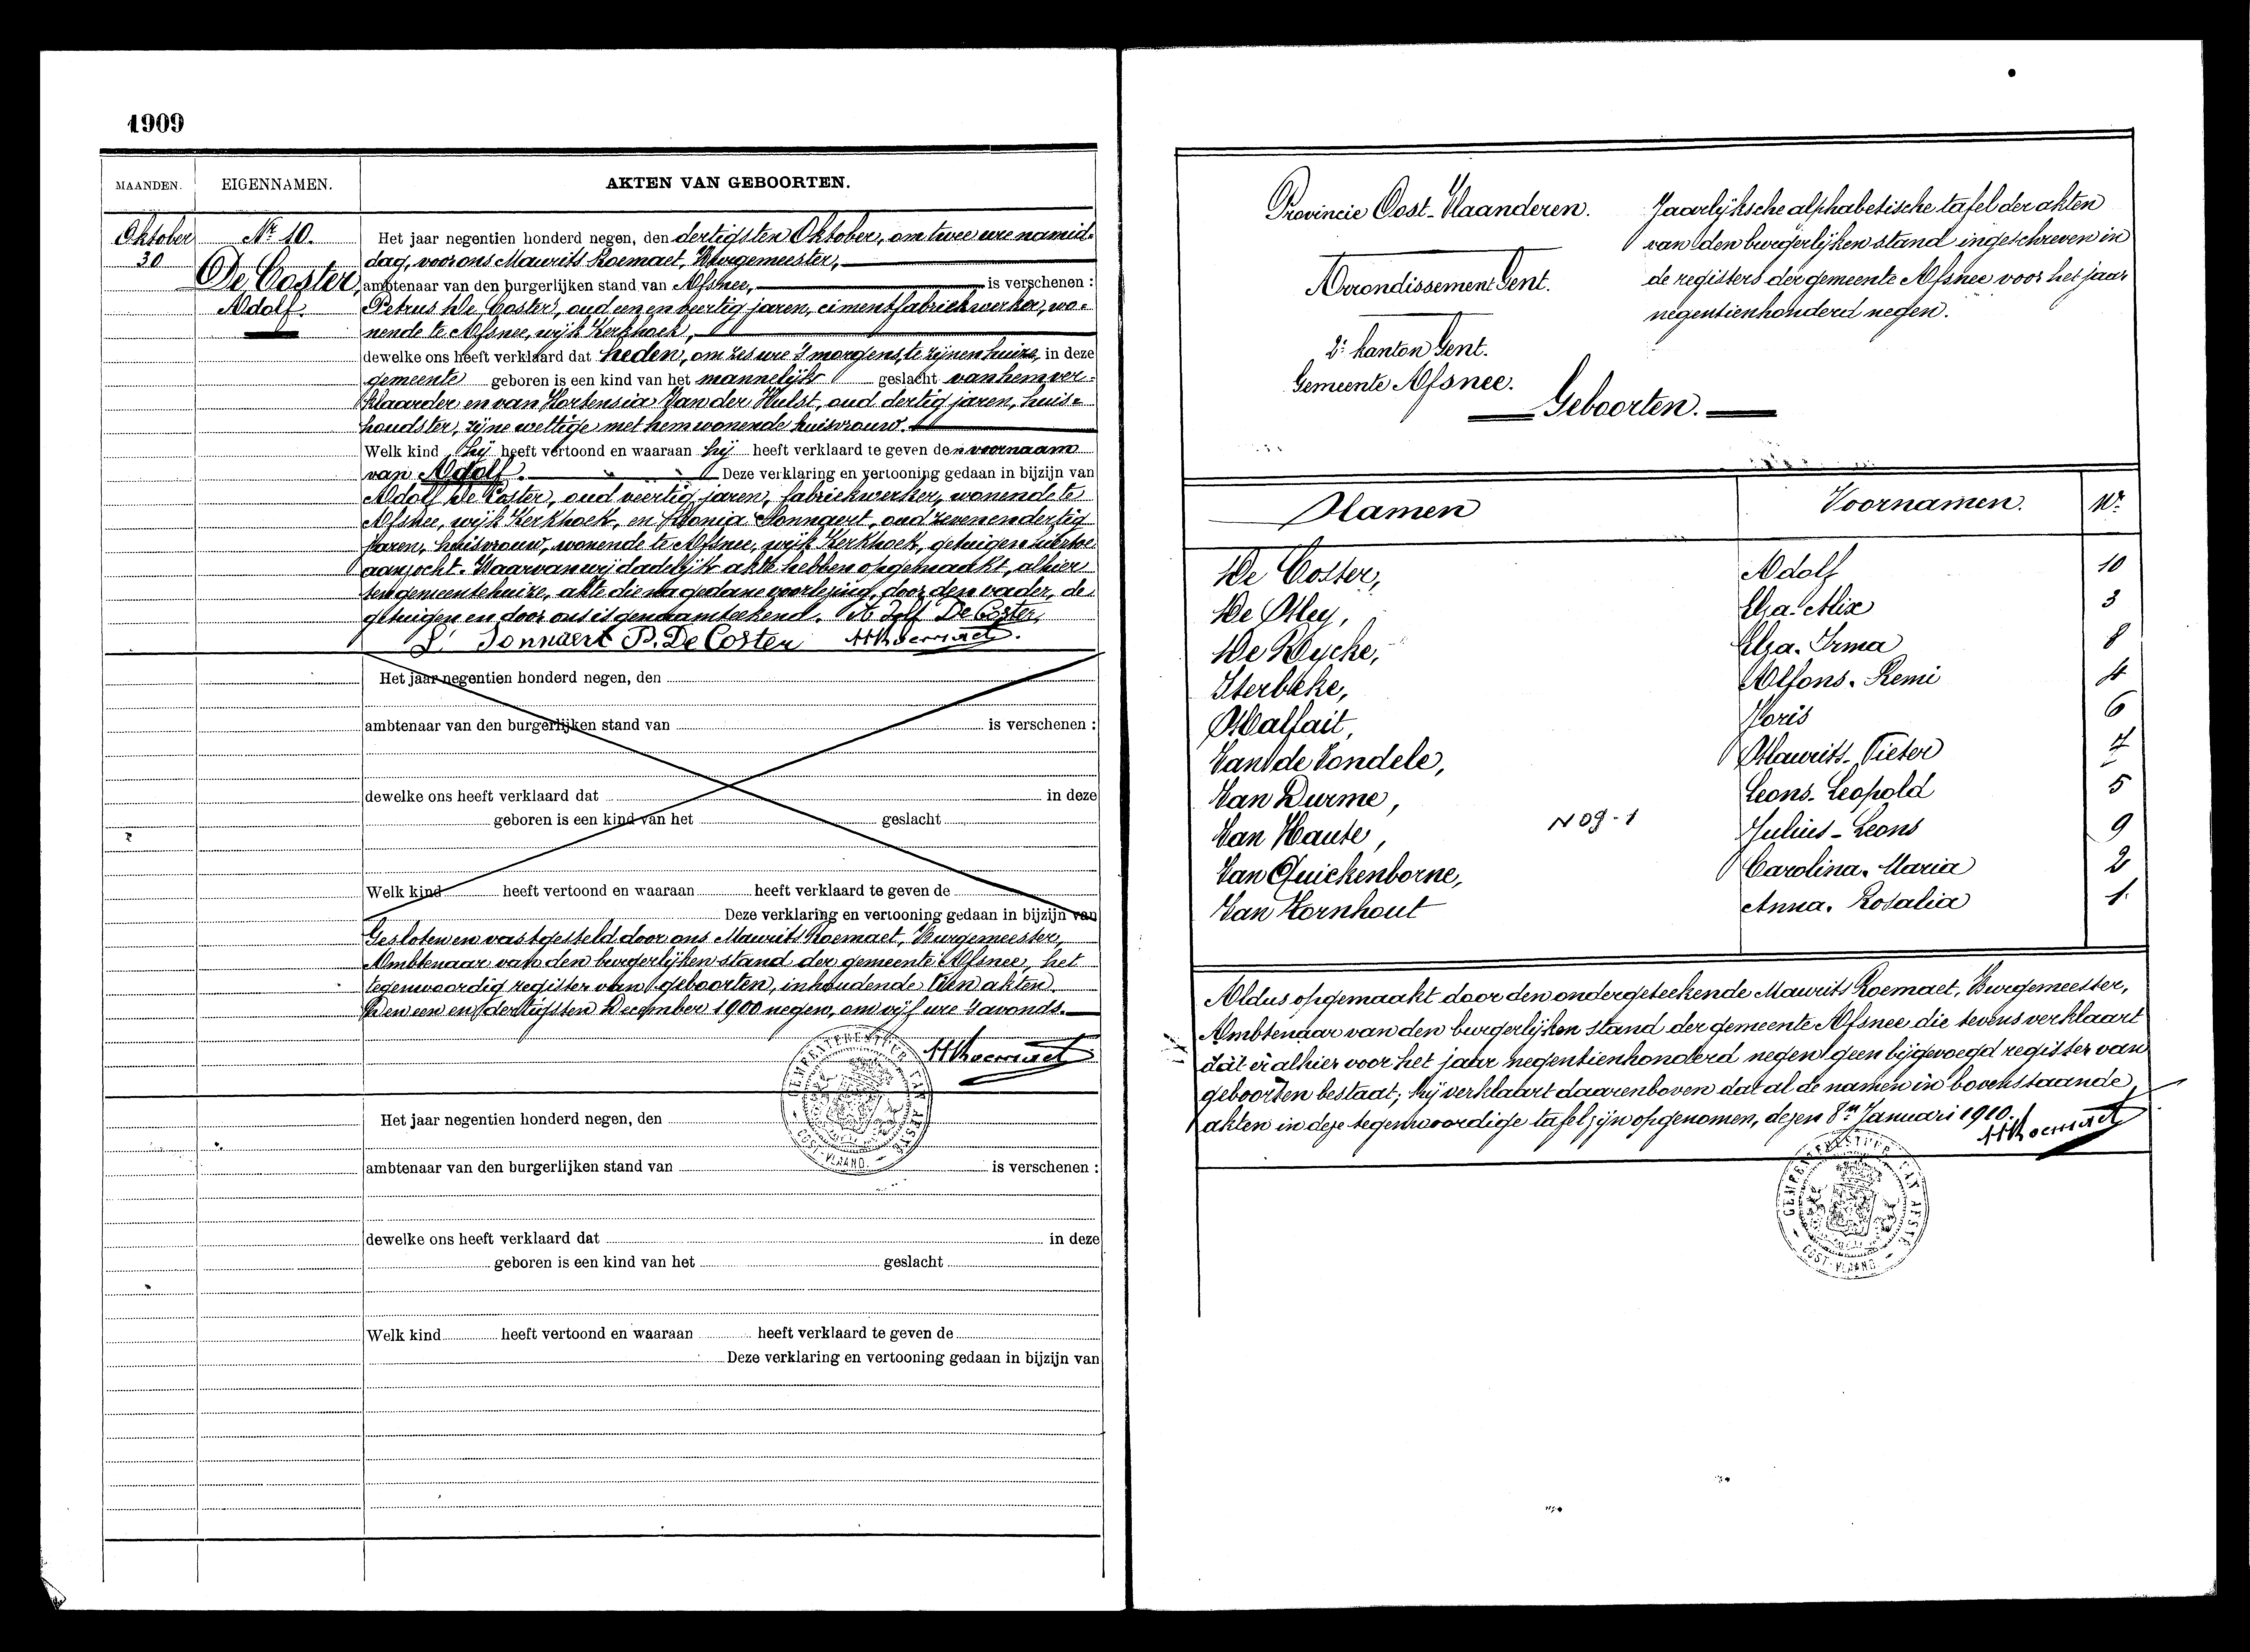 1909
MAANDEN. EIGENNAMEN. AKTEN VAN GEBOORTEN.
Oktober
30
Nr 10.
De Coster,
Adolf.
Het jaar negentien honderd negen, den dertigsten Oktober, om twee ure namid-
dag, voor ons Maurits Roemaet, Burgemeester,
ambtenaar van den burgerlijken stand van Afsnee, is verschenen :
Petrus De Coster, oud een en veertig jaren, cimentfabriekwerker, wo-
nende te Afsnee, wijk Kerkhoek,
dewelke ons heeft verklaard dat heden, om zes ure 's morgens, te zijnen huize, in deze
gemeente geboren is een kind van het mannelijk geslacht van hem ver-
klaarder en van Hortensia Van der Hulst, oud dertig jaren, huis-
houdster, zijne wettige met hem wonende huisvrouw.
Welk kind hij heeft vertoond en waaraan hij heeft verklaard te geven den voornaam
van Adolf. Deze verklaring en vertooning gedaan in bijzijn van
Adolf De Coster, oud veertig jaren, fabriekwerker, wonende te
Afsnee, wijk Kerkhoek, en Sonnaert, oud zevenendertig
jaren, huisvrouw, wonende te Afsnee, wijk Kerkhoek, getuigen hiertoe
aanzocht. Waarvan wij dadelijk akte hebben opgemaakt, alhier
ten gemeentehuize, akte die na gedane voorlezing, door den vader, de
getuigen en door ons is genaamteekend. A Dolf De Coster
S. Sonnaert P. De Coster MRoemaet.
Het jaar negentien honderd negen, den
ambtenaar van den burgerlijken stand van is verschenen :
dewelke ons heeft verklaard dat in deze
geboren is een kind van het geslacht
Welk kind heeft vertoond en waaraan heeft verklaard te geven de
Deze verklaring en vertooning gedaan in bijzijn van
Gesloten en vastgesteld door ons Maurits Roemaet, Burgemeester,
Ambtenaar van den burgerlijken stand der gemeente Afsnee, het
tegenwoordig register van geboorten, inhoudende tien akten.
Den een en dertigsten December 1900 negen, om vijf ure 's avonds.
MRoemaet
Het jaar negentien honderd negen, den
ambtenaar van den burgerlijken stand van is verschenen :
dewelke ons heeft verklaard dat in deze
geboren is een kind van het geslacht
Welk kind heeft vertoond en waaraan heeft verklaard te geven de
Deze verklaring en vertooning gedaan in bijzijn van
Provincie Oost-Vlaanderen.
Arrondissement Gent.
2e kanton Gent.
Gemeente Afsnee.
Jaarlijksche alphabetische tafel der akten
van den burgerlijken stand ingeschreven in
de registers der gemeente Afsnee voor het jaar
negentienhonderd negen.
Geboorten.
Namen Voornamen. Nr.
De Coster, Adolf 10
De Pley, Elza-Alix 3
De Rycke, Elza-Irma 8
Sterbeke, Alfons-Remi 4
Malfait, Joris 6
Van de Vondele, Maurits-Pieter 7
Van Durme, Leons-Leopold 5
Van Haute, Julius-Leons 9
N 09-1
Van Quickenborne, Carolina-Maria 2
Van Hornhout Anna-Rosalia 1.
Aldus opgemaakt door den ondergeteekende Maurits Roemaet, Burgemeester,
Ambtenaar van den burgerlijken stand der gemeente Afsnee die tevens verklaart
dat er alhier voor het jaar negentienhonderd negen geen bijgevoegd register van
geboorten bestaat; hij verklaart daarenboven dat al de namen in bovenstaande
akten in deze tegenwoordige tafel zijn opgenomen, dezen 8n Januari 1910.
MRoemaet